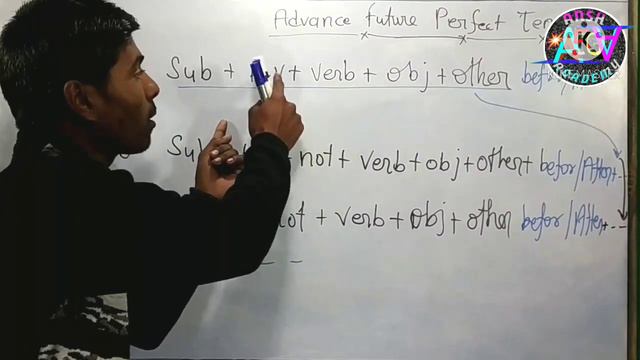 Advance future Perfect Ten
Sub + + verb + obj + other befor
Sub + not + verb + obj + other + befor/After + --
not + verb + obj + other befor/After + --